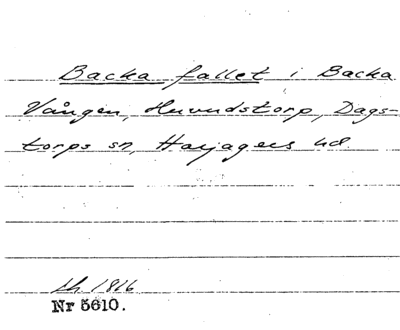 Backa fallet i Backa
Vången, Huvudstorp, Dags-
torps sn, Harjagers hd.
Lh 1816
Nr 5610.